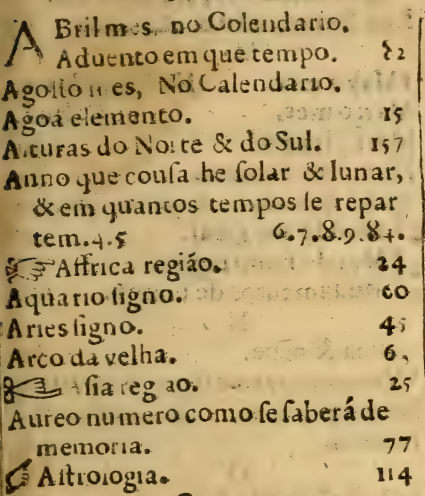 ABril mes, no Colendario.
Aduento em que tempo. 82
Agosto mes, No Calendario.
Agoa elemento. 15
Alturas do Norte & do Sul. 157
Anno que cousa he solar & lunar,
& em quantos tempos se repar
tem. 4. 5 6. 7. 8. 9. 84.
Affrica região. 24
Aquario signo. 60
Aries signo. 45
Arco da velha. 6
Asia região. 25
Aureo numero como se saberá de
memoria. 77
Astrologia. 114